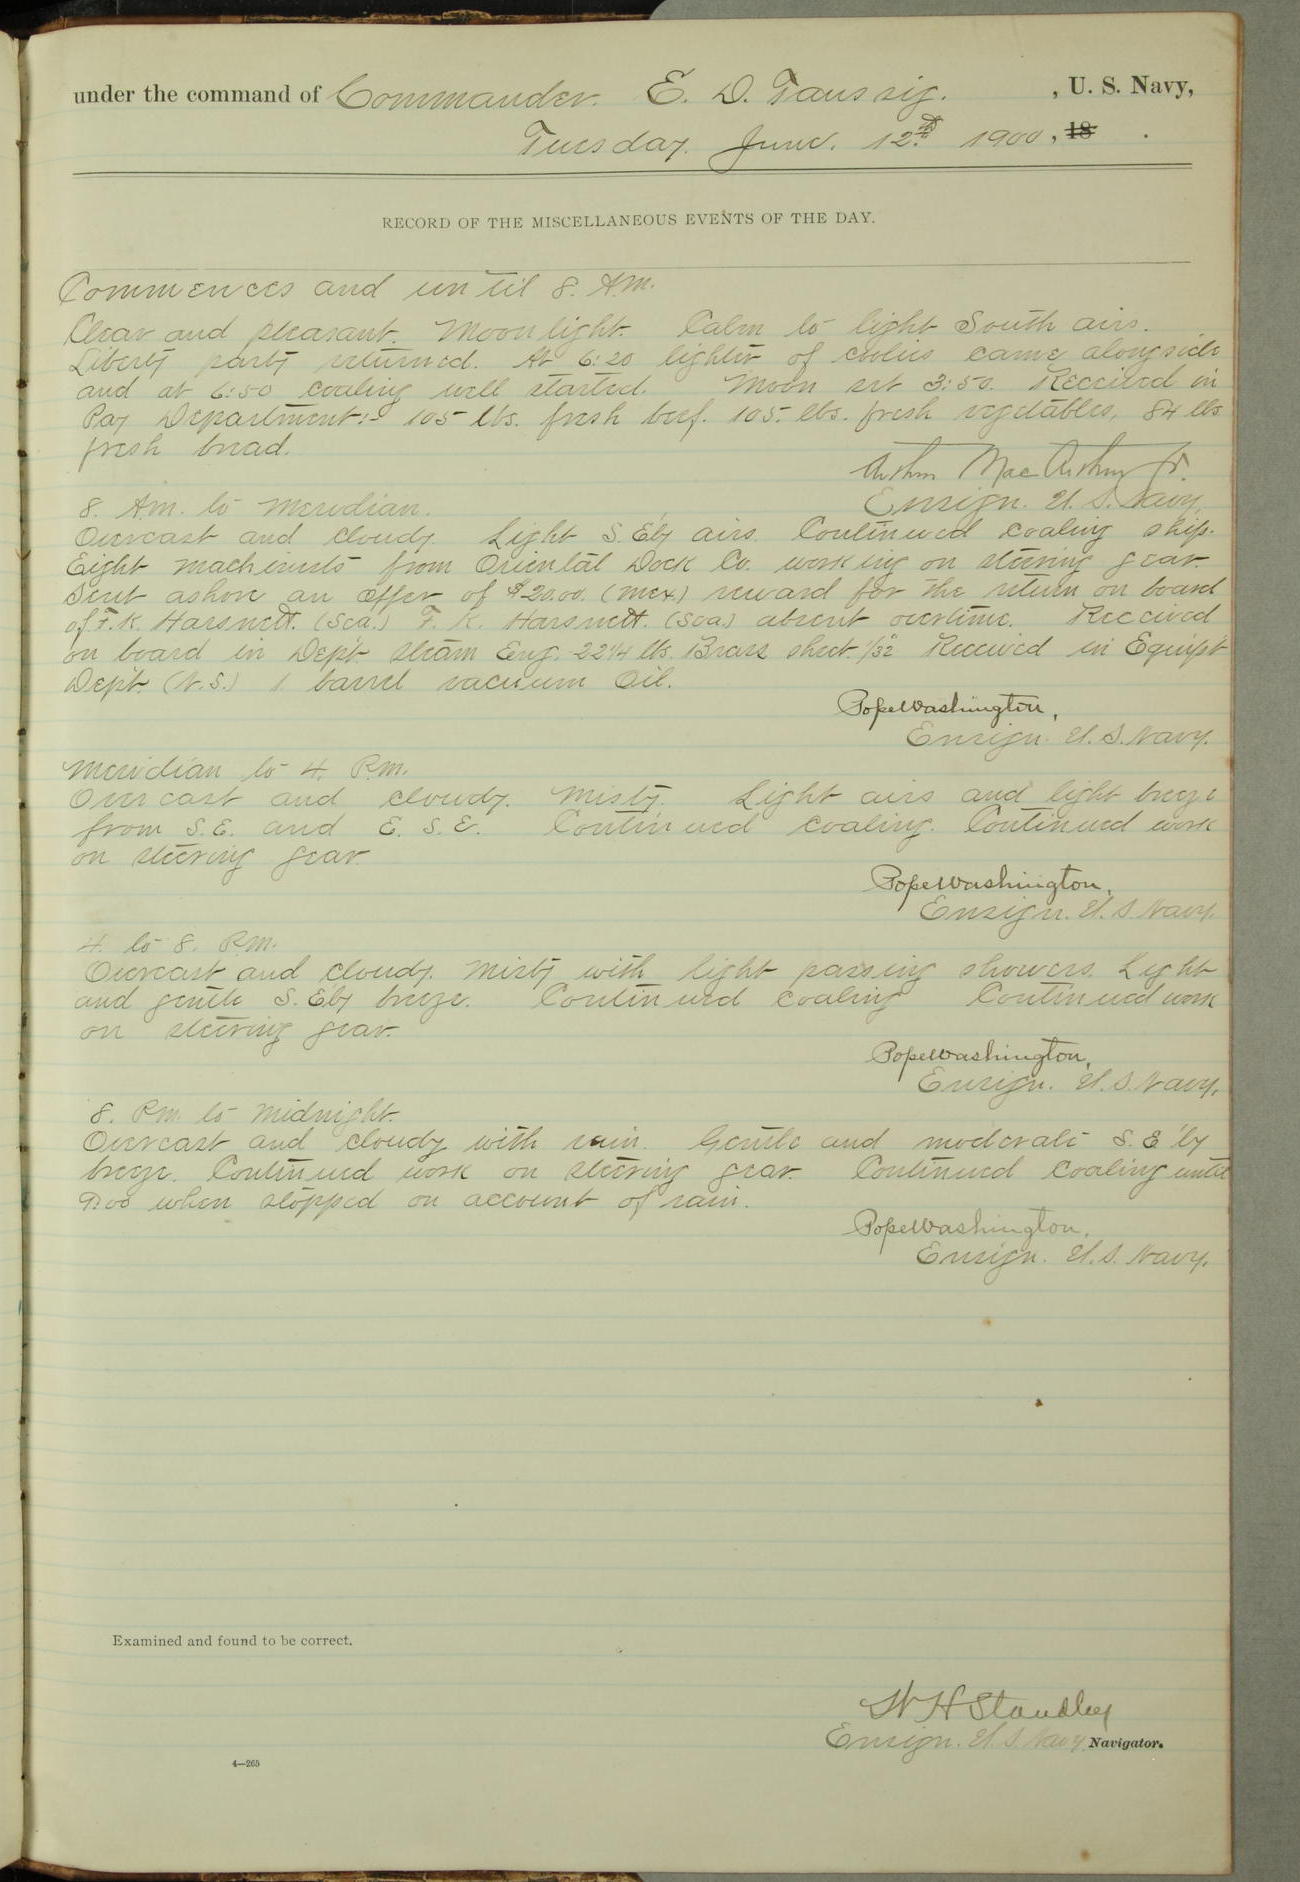 under the command of Commander. E. D. Taussig. , U. S. Navy,
Tuesday. June. 12th. 1900, 18 .
RECORD OF THE MISCELLANEOUS EVENTS OF THE DAY.
Commences and until 8. A.M.
Clear and pleasant. Moonlight. Calm to light South airs.
Liberty party returned. At 6:20 lighter of coolies came alongside
and at 6:50 coaling well started. Moon set 3:50. Received in
Pay Department:- 105 lbs. fresh beef. 105. lbs. fresh vegetables, 84 lbs
fresh bread.
Arthur MacArthur Jr.
Ensign. U. S. Navy.
8. A.M. to Meridian.
Overcast and cloudy Light S.E'ly airs. Continued coaling ship.
Eight machinists from Oriental Dock Co. working on steering gear.
Sent ashore an offer of $20.00. (Mex) reward for the return on board
of F. K. Harsnett. (Sea.) F. K. Harsnett. (Sea.) absent overtime. Received
on board in Dep't. Steam Eng. 22 1/4 lbs. Brass sheet. 1/32" Received in Equip't
Dep't. (N.S.) 1 barrel vacuum Oil.
Pope Washington,
Ensign. U. S. Navy.
Meridian to 4. P.M.
Overcast and cloudy. Misty. Light airs and light breeze
from S.E. and E. S. E. Continued coaling. Continued work
on steering gear.
Pope Washington,
Ensign. U. S. Navy.
4. to 8. P.M.
Overcast and cloudy. Misty with light passing showers. Light
and gentle S. E'ly breeze. Continued coaling Continued work
on steering gear.
Pope Washington,
Ensign. U. S. Navy.
8. P.M. to Midnight.
Overcast and cloudy with rain. Gentle and moderate S. E'ly
breeze. Continued work on steering gear. Continued coaling until
when stopped on account of rain.
Pope Washington,
Ensign. U. S. Navy.
Examined and found to be correct.
W H Standley
Ensign. U. S. Navy Navigator.
4—265